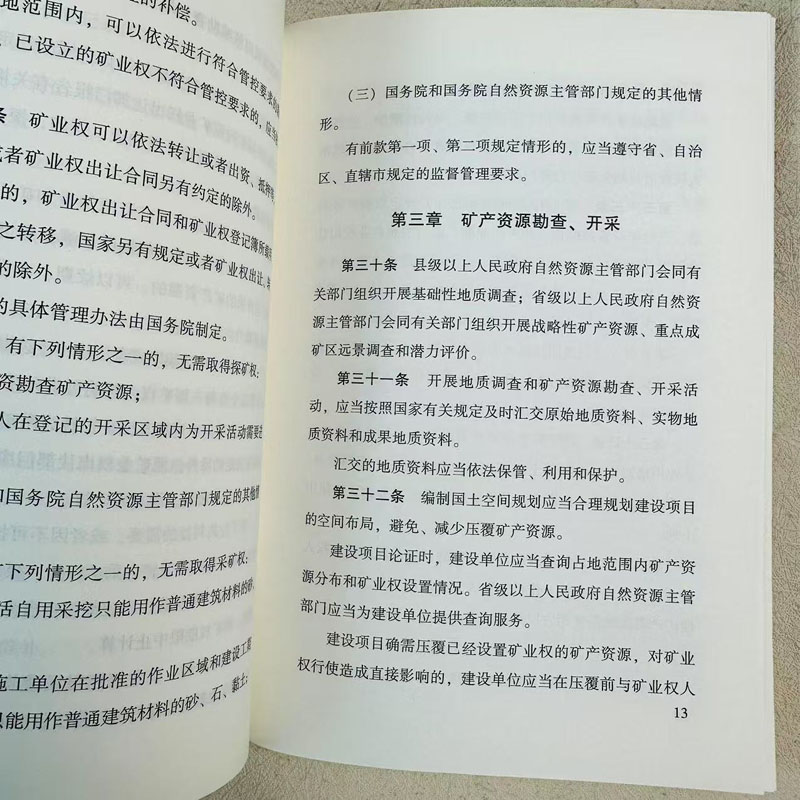 的补偿。
地范围内，可以依法进行符合管控要求的
已设立的矿业权不符合管控要求的，应
条 矿业权可以依法转让或者出资、抵押
或者矿业权出让合同另有约定的除外。
的，矿业权出让合同和矿业权登记簿所
之转移，国家另有规定或者矿业权出让、
的除外。
的具体管理办法由国务院制定。
有下列情形之一的，无需取得探矿权：
资勘查矿产资源；
人在登记的开采区域内为开采活动需要
和国务院自然资源主管部门规定的其他
有下列情形之一的，无需取得采矿权：
活自用采挖只能用作普通建筑材料的砂、
施工单位在批准的作业区域和建设工期
只能用作普通建筑材料的砂、石、黏土；
（三）国务院和国务院自然资源主管部门规定的其他情
形。
有前款第一项、第二项规定情形的，应当遵守省、自治
区、直辖市规定的监督管理要求。
第三章 矿产资源勘查、开采
第三十条 县级以上人民政府自然资源主管部门会同有
关部门组织开展基础性地质调查；省级以上人民政府自然资
源主管部门会同有关部门组织开展战略性矿产资源、重点成
矿区远景调查和潜力评价。
第三十一条 开展地质调查和矿产资源勘查、开采活
动，应当按照国家有关规定及时汇交原始地质资料、实物地
质资料和成果地质资料。
汇交的地质资料应当依法保管、利用和保护。
第三十二条 编制国土空间规划应当合理规划建设项目
的空间布局，避免、减少压覆矿产资源。
建设项目论证时，建设单位应当查询占地范围内矿产资
源分布和矿业权设置情况。省级以上人民政府自然资源主管
部门应当为建设单位提供查询服务。
建设项目确需压覆已经设置矿业权的矿产资源，对矿业
权行使造成直接影响的，建设单位应当在压覆前与矿业权人
13